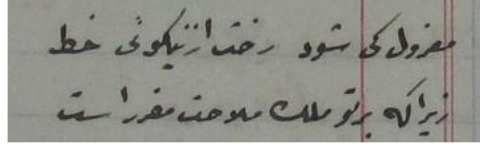 معزول کی شود رخت از نیکوئی خط
زیرا که بر تو ملک ملاحت مقرر است